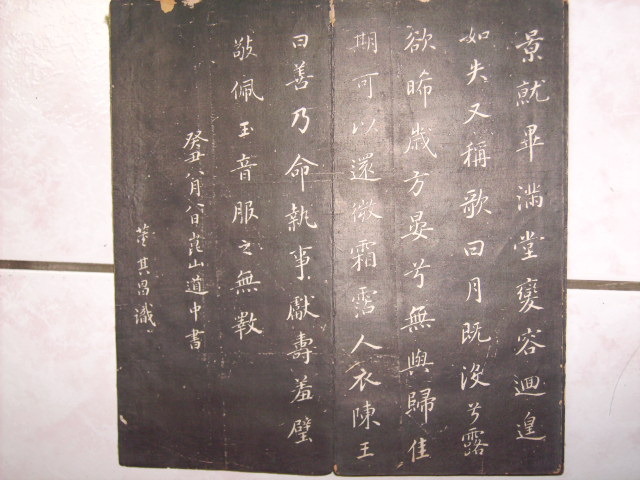 景就畢滿堂變容迴遑
如失又稱歌曰月既沒兮露
欲晞歲方晏兮無與歸佳
期可以還微霜霑人衣陳王
曰善乃命執事獻壽羞璧
敬佩玉音服之無斁
癸丑八月八日崑山道中書
董其昌識